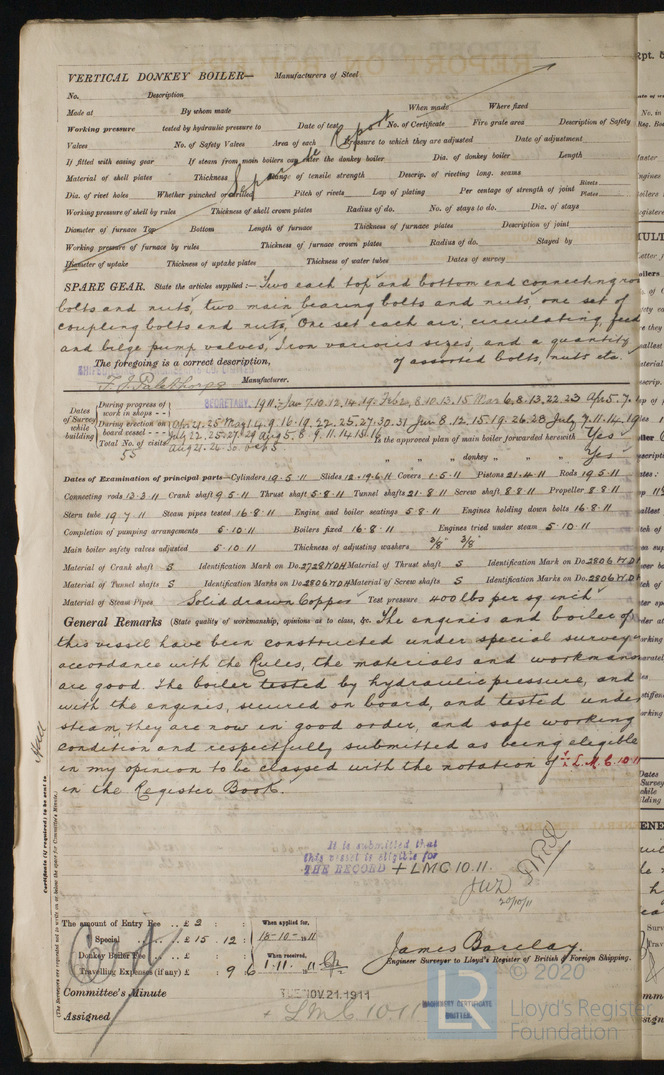 VERTICAL DONKEY BOILER— Manufacturers of Steel
No. Description
Made at By whom made When made Where fixed
Working pressure tested by hydraulic pressure to Date of test No. of Certificate Fire grate area Description of Safety
Valves No. of Safety Valves Area of each Pressure to which they are adjusted Date of adjustment
If fitted with easing gear If steam from main boilers can enter the donkey boiler Dia. of donkey boiler Length
Material of shell plates Thickness Range of tensile strength Descrip. of riveting long. seams
Dia. of rivet holes Whether punched or drilled Pitch of rivets Lap of plating Per centage of strength of joint Rivets Plates
Working pressure of shell by rules Thickness of shell crown plates Radius of do. No. of stays to do. Dia. of stays
Diameter of furnace Top Bottom Length of furnace Thickness of furnace plates Description of joint
Working pressure of furnace by rules Thickness of furnace crown plates Radius of do. Stayed by
Diameter of uptake Thickness of uptake plates Thickness of water tubes Dates of survey
Separate Report
SPARE GEAR. State the articles supplied:— Two each top and bottom end connecting rod
bolts and nuts, two main bearing bolts and nuts, one set of
coupling bolts and nuts, One set each air, circulating, feed
and bilge pump valves, Iron various sizes, and a quantity
of assorted bolts, nuts etc.
The foregoing is a correct description,
Manufacturer.
SECRETARY.
Dates of Survey while building
During progress of work in shops - - 1911. Jan 7.10.12.14.19. Feb 2. 8.10.13.15 Mar 6.8.13.22.23 Apr 5.7.
During erection on board vessel - - - Apr 21.25 May 1.4.9.16.19.22.25.27.30.31 Jun 8.12.15.19.26.28 July 7.11.14.19
July 22.25.27.29 Aug 5.8.9.11.14.15.16
Aug 21.24.30. Sep 5
Total No. of visits 55
Is the approved plan of main boiler forwarded herewith Yes
" " " donkey " " " Yes
Dates of Examination of principal parts—Cylinders 19.5.11 Slides 12.19.6.11 Covers 1.5.11 Pistons 21.4.11 Rods 19.5.11
Connecting rods 13.3.11 Crank shaft 9.5.11 Thrust shaft 5.8.11 Tunnel shafts 21.8.11 Screw shaft 8.8.11 Propeller 8.8.11
Stern tube 19.7.11 Steam pipes tested 16.8.11 Engine and boiler seatings 5.8.11 Engines holding down bolts 16.8.11
Completion of pumping arrangements 5.10.11 Boilers fixed 16.8.11 Engines tried under steam 5.10.11
Main boiler safety valves adjusted 5.10.11 Thickness of adjusting washers 3/8" 3/8"
Material of Crank shaft S Identification Mark on Do. 2728WDH Material of Thrust shaft S Identification Mark on Do. 2806 WD
Material of Tunnel shafts S Identification Marks on Do. 2806WDH Material of Screw shafts S Identification Marks on Do. 2806 WD
Material of Steam Pipes Solid drawn Copper Test pressure 400 lbs per sq inch
General Remarks (State quality of workmanship, opinions as to class, &c. The engines and boiler of
this vessel have been constructed under special survey in
accordance with the Rules, the materials and workmans
are good. The boiler tested by hydraulic pressure, and
with the engines, secured on board, and tested under
steam, they are now in good order, and safe working
condition and respectfully submitted as being eligible
in my opinion to be classed with the notation of + L.M.C. 10.11
in the Register Book.
Hull
Certificate (if required) to be sent to
(The Surveyors are requested not to write on or below the space for Committee's Minute.)
It is submitted that
this vessel is eligible for
THE RECORD + LMC 10.11.
20/10/11
The amount of Entry Fee .. £ 3 : : When applied for,
Special .. .. £ 15 . 12 : 18-10-1911
Donkey Boiler Fee .. .. £ : : When received,
Travelling Expenses (if any) £ : 9 6 1.11.1911
James Barclay.
Engineer Surveyor to Lloyd's Register of British & Foreign Shipping.
Committee's Minute TUE. NOV. 21. 1911
Assigned + LMC 10.11
MACHINERY CERTIFICATE
WRITTEN
© 2020
LR
Lloyd's Register
Foundation